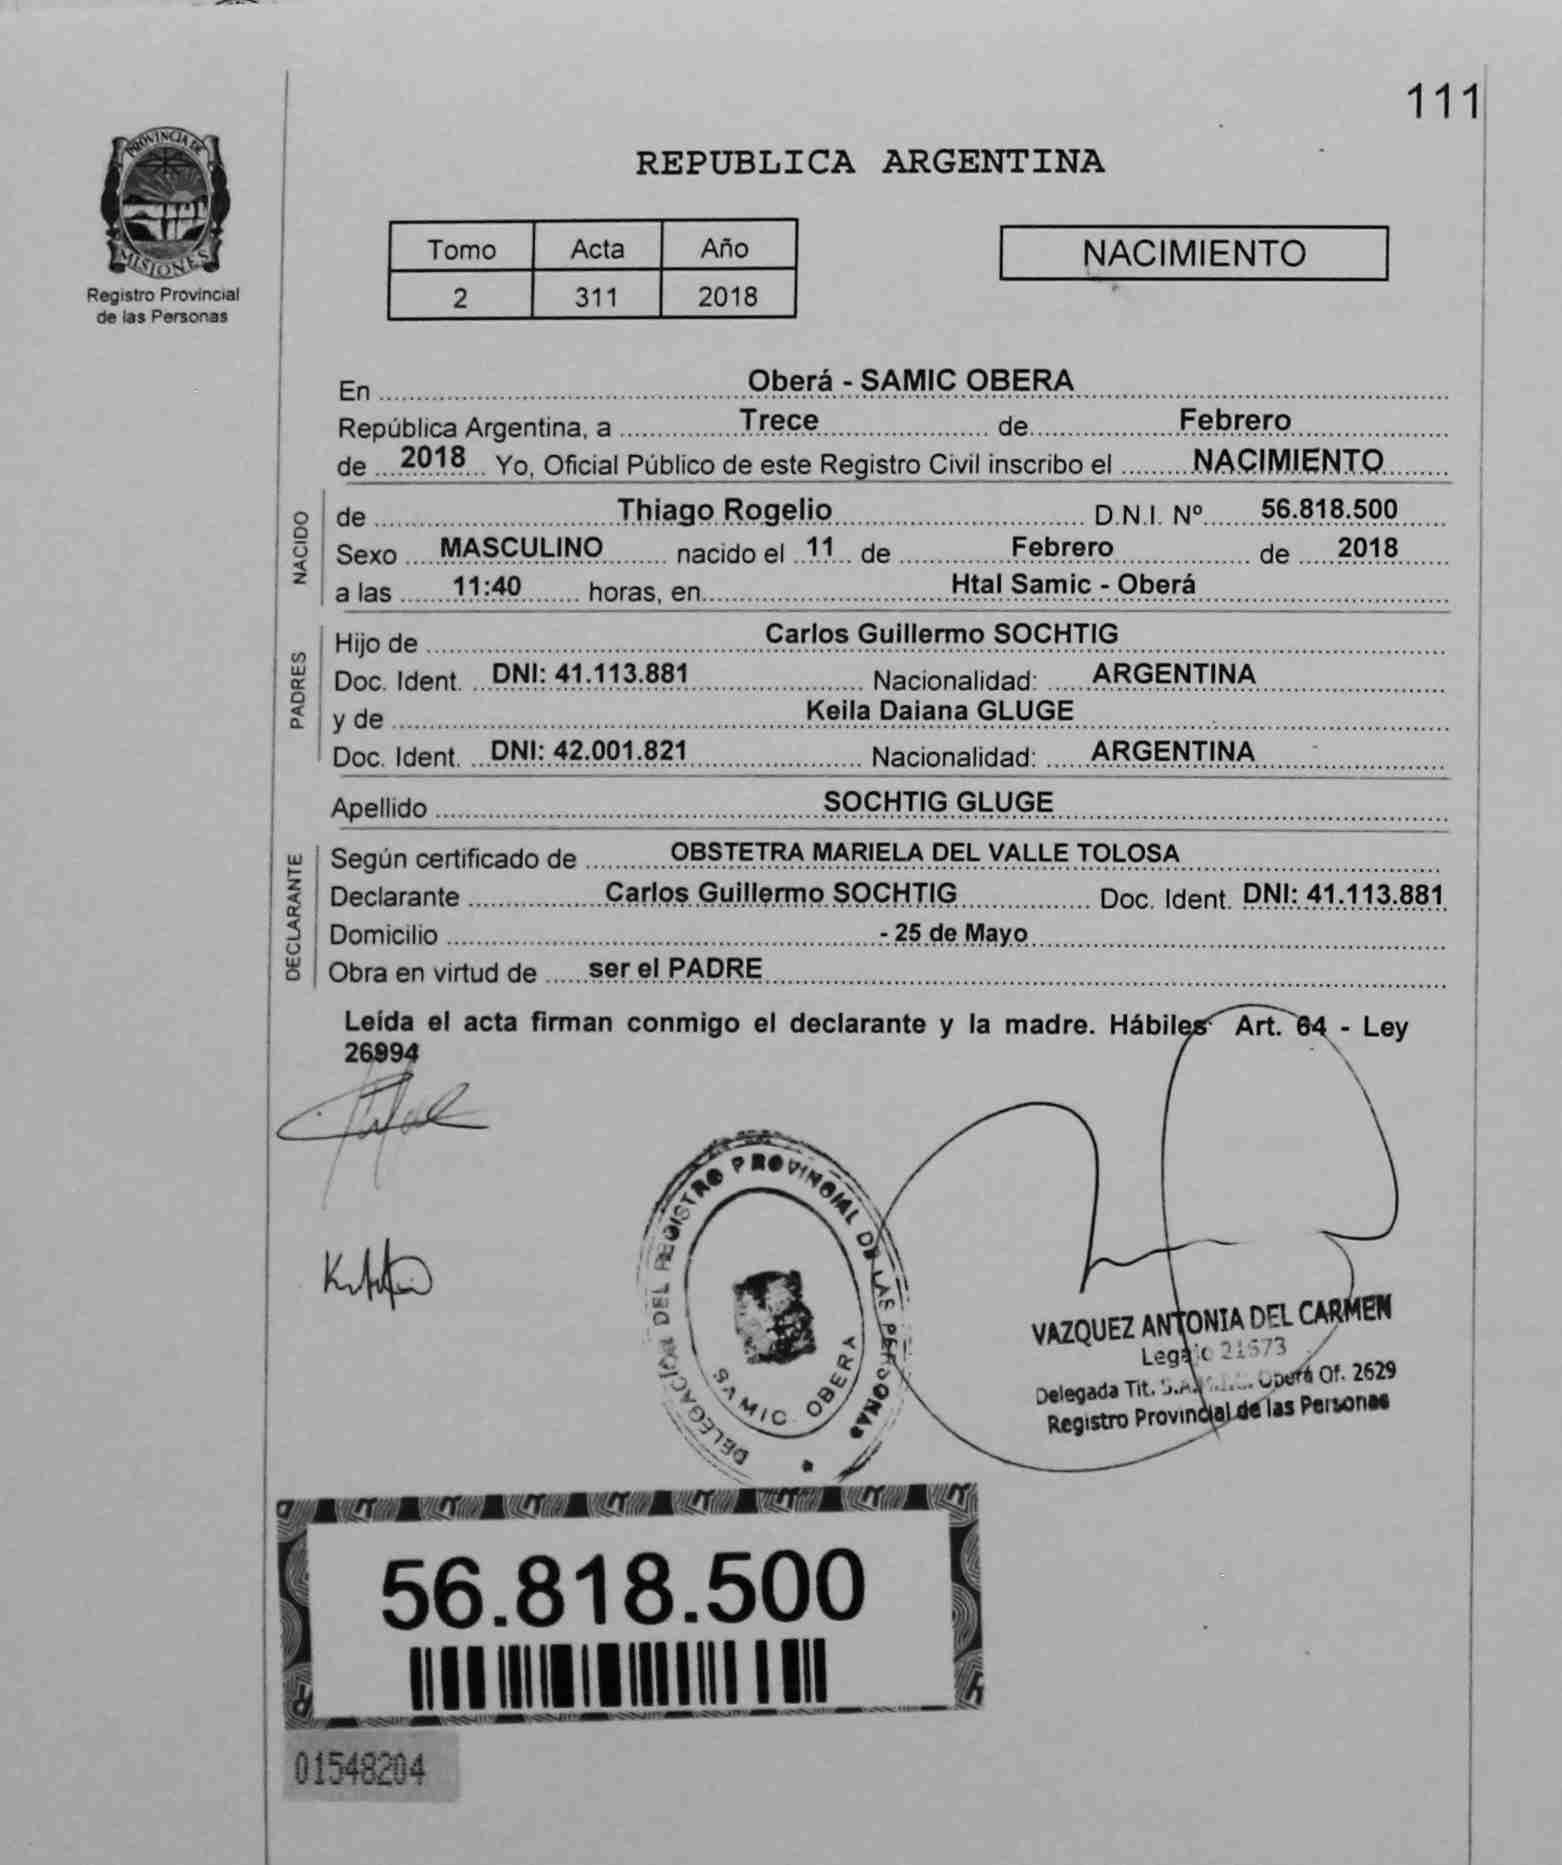 111
PROVINCIA DE
MISIONES
Registro Provincial
de las Personas
REPUBLICA ARGENTINA
Tomo Acta Año
2 311 2018
NACIMIENTO
En Oberá - SAMIC OBERA
República Argentina, a Trece de Febrero
de 2018 Yo, Oficial Público de este Registro Civil inscribo el NACIMIENTO
NACIDO
de Thiago Rogelio D.N.I. Nº 56.818.500
Sexo MASCULINO nacido el 11 de Febrero de 2018
a las 11:40 horas, en Htal Samic - Oberá
PADRES
Hijo de Carlos Guillermo SOCHTIG
Doc. Ident. DNI: 41.113.881 Nacionalidad: ARGENTINA
y de Keila Daiana GLUGE
Doc. Ident. DNI: 42.001.821 Nacionalidad: ARGENTINA
Apellido SOCHTIG GLUGE
DECLARANTE
Según certificado de OBSTETRA MARIELA DEL VALLE TOLOSA
Declarante Carlos Guillermo SOCHTIG Doc. Ident. DNI: 41.113.881
Domicilio - 25 de Mayo
Obra en virtud de ser el PADRE
Leída el acta firman conmigo el declarante y la madre. Hábiles Art. 64 - Ley
26994
DELEGACIÓN DEL REGISTRO PROVINCIAL DE LAS PERSONAS
SAMIC OBERA
VAZQUEZ ANTONIA DEL CARMEN
Legajo 21673
Delegada Tit. Oberá Of. 2629
Registro Provincial de las Personas
56.818.500
01548204